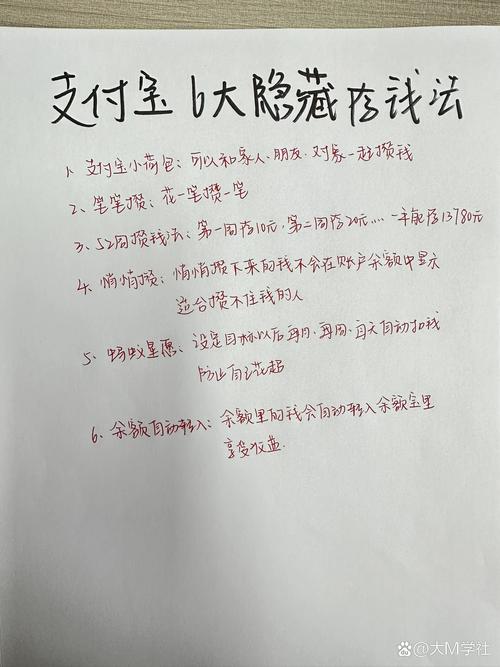 支付宝6大隐藏存钱法
1、支付宝小荷包：可以和家人、朋友、对象一起攒钱
2、笔笔攒：花一笔攒一笔
3、52周攒钱法：第一周存10元，第二周存20元…… 一年能存13780元
4、悄悄攒：悄悄攒下来的钱不会在账户余额中显示
适合攒不住钱的人
5、蚂蚁星愿：设定目标以后每月、每周、每天自动扣钱
防止自己花超
6、余额自动转入：余额里的钱会自动转入余额宝里
享受收益.
百家号/大M学社